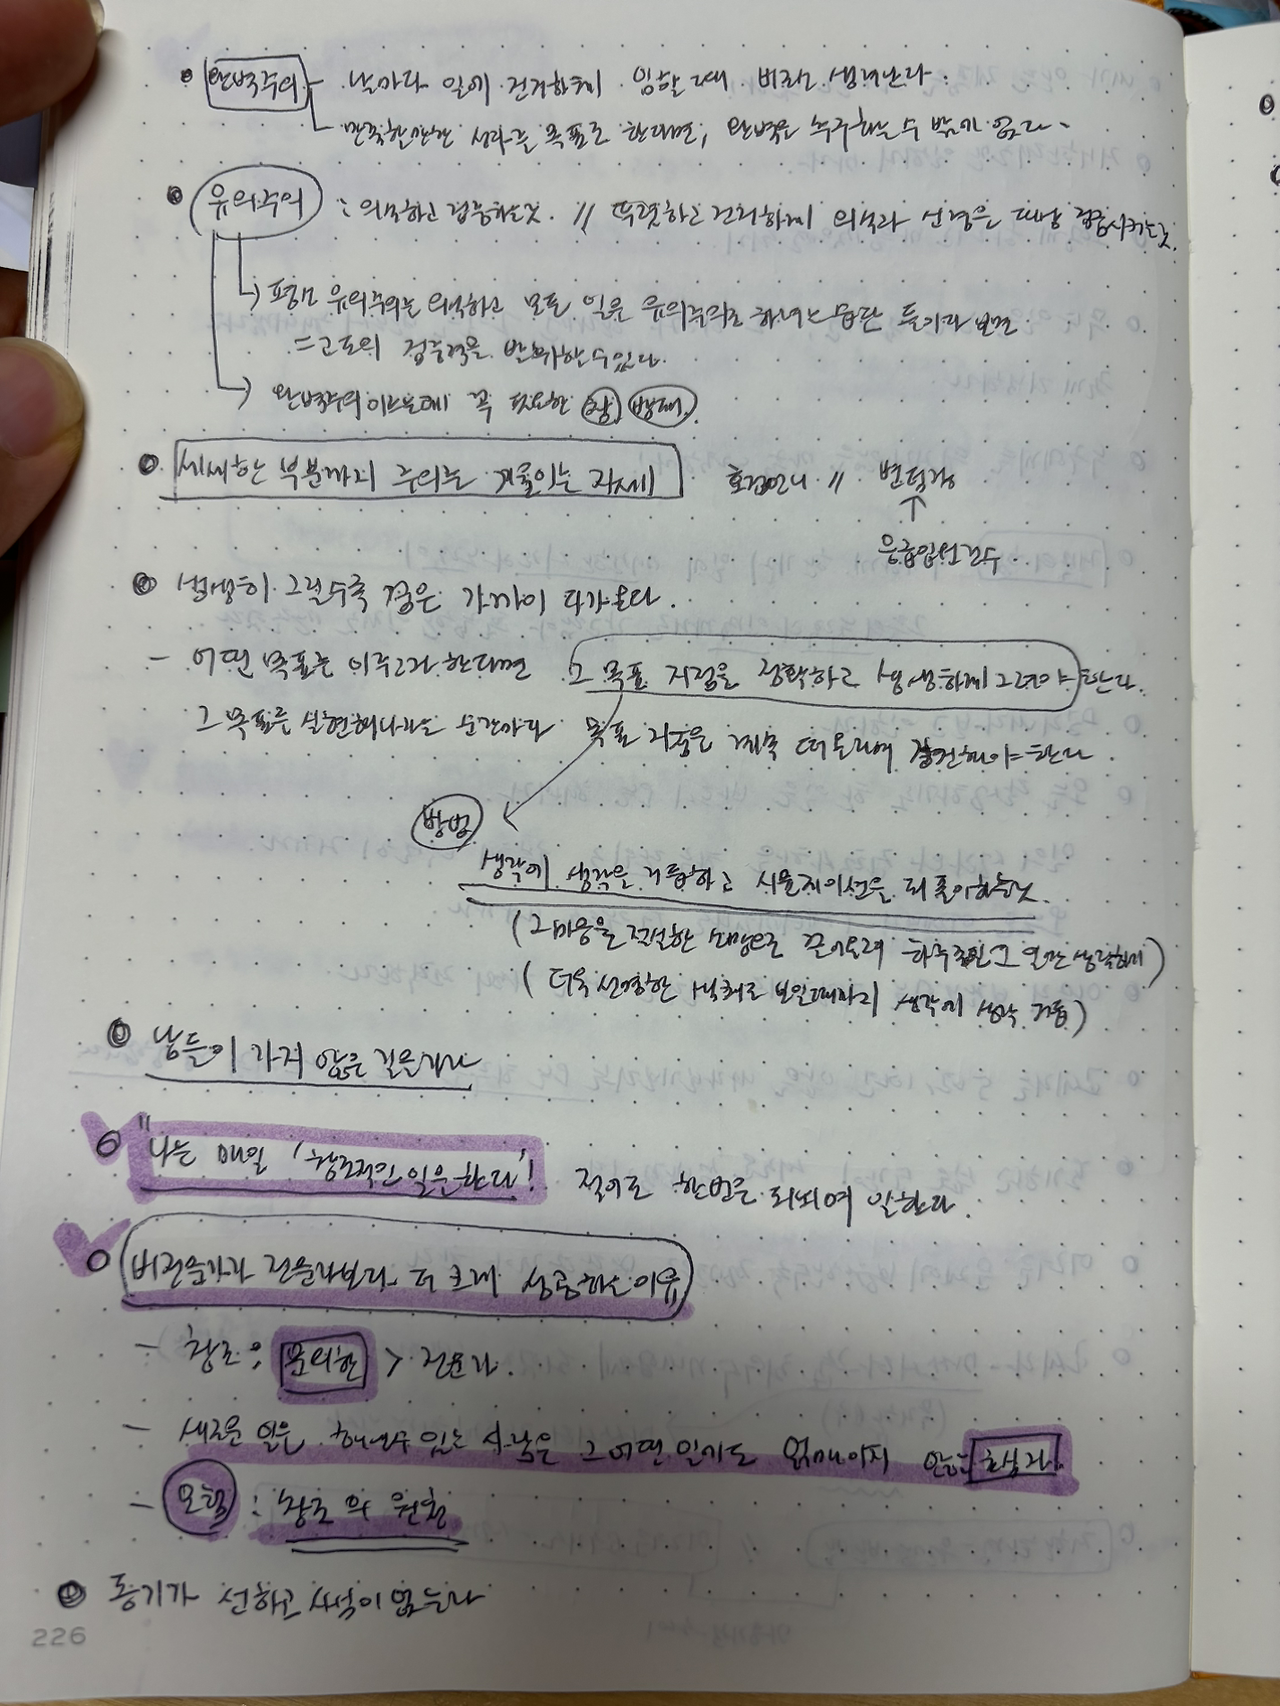 완벽주의 - 날마다 일에 진지하게 임할 때 비로소 생겨난다.
만족할만한 성과를 목표로 한다면, 완벽을 추구하는 수 밖에 없다.
유의주의 : 의식하고 집중하는 것. // 뚜렷하고 진지하게 의식과 신경을 대상 집중시키는 것.
평소 유의주의를 의식하고 모든 일을 유의주의로 하려는 습관
고도의 집중력을 발휘할 수 있다.
완벽주의 꼭 필요한 창, 방패.
세세한 부분까지 주의를 기울이는 자세
생생히 그릴수록 꿈은 가까이 다가온다.
- 어떤 목표를 이루고자 한다면 그 목표 지점을 정확하고 생생하게 그려야 한다.
그 목표를 실현해나가는 순간마다 목표 지점을 계속 떠올리며 해야 한다.
방법
생각에 생각을 거듭하고 시뮬레이션을 되풀이하는것.
(그 마음을 절실한 소망으로 끌어올려 하루종일 그 일만 생각하기)
(더욱 선명한 색채로 보일때까지 생각에 생각 거듭)
남들이 가지 않은 길을 가라
"나는 매일 '창조적인 일을 한다'! 적어도 한번은 되뇌며 일한다.
비전문가가 전문가보다 더 크게 성공하는 이유
- 창조 : 문외한 > 전문가.
- 새로운 일을 해낼 수 있는 사람은 그 어떤 일에도 얽매이지 않는
- 모험 : 창조의 원천
동기가 선하고 사심이 없는가
226